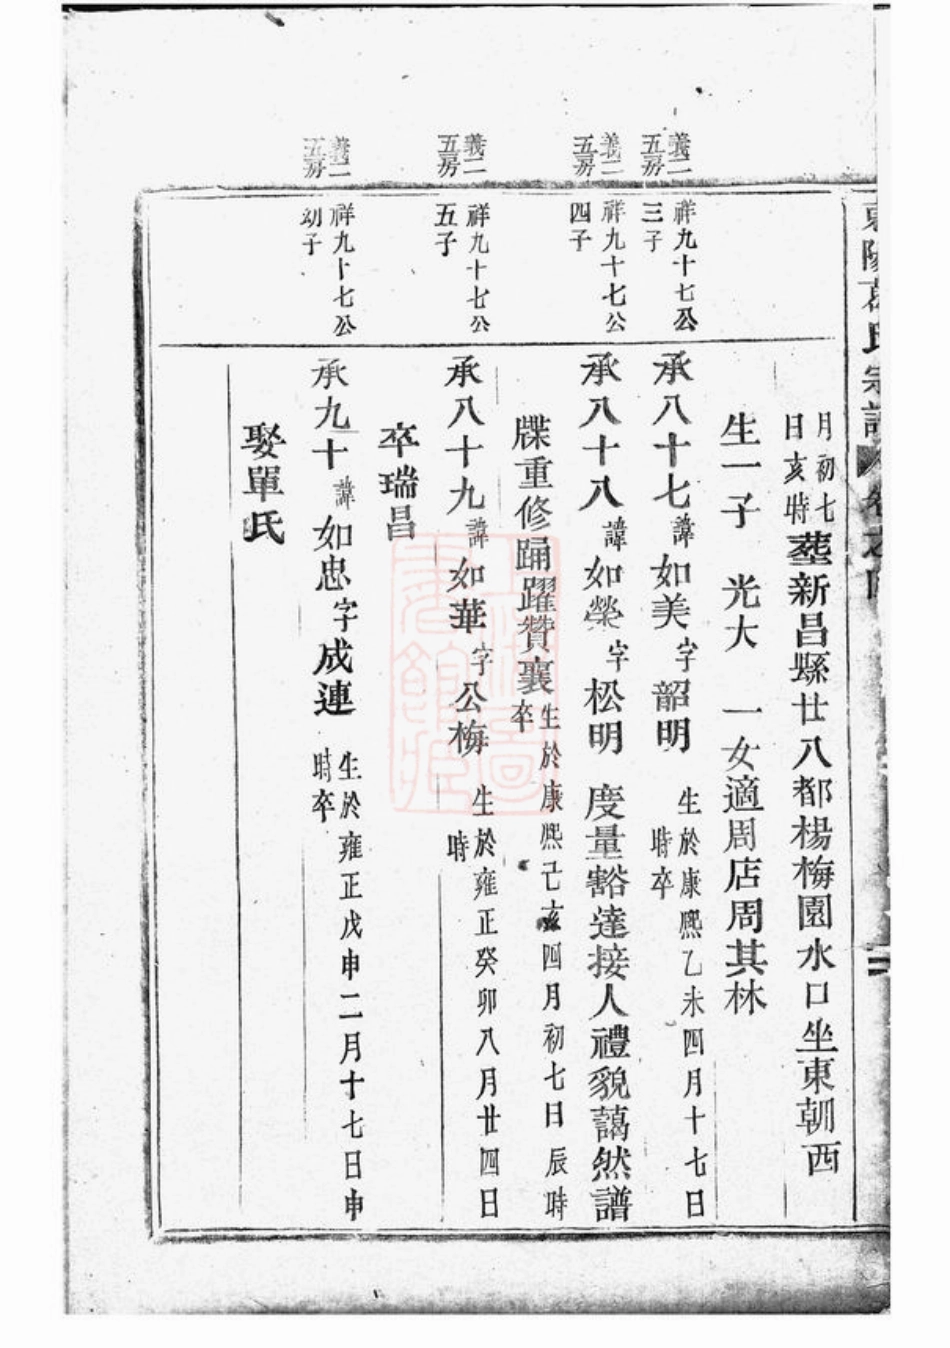 氏宗譜
月初七
日亥時塟新昌縣廿八都楊梅園水口坐東朝西
生一子 光大 一女適周店周其林
義二
五房
祥九十七公
三子
承八十七諱如美字韶明 生於康熙乙未四月十七日
時卒
義二
五房
祥九十七公
四子
承八十八諱如榮字松明 度量豁達接人禮貌藹然譜
牒重修踊躍贊襄生於康熙己亥四月初七日辰時
卒
義二
五房
祥九十七公
五子
承八十九諱如華字公梅 生於雍正癸卯八月廿四日
時
卒瑞昌
義二
五房
祥九十七公
幼子
承九十諱如忠字成連 生於雍正戊申二月十七日申
時卒
娶單氏